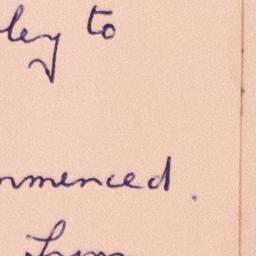 ley to
mmenced.